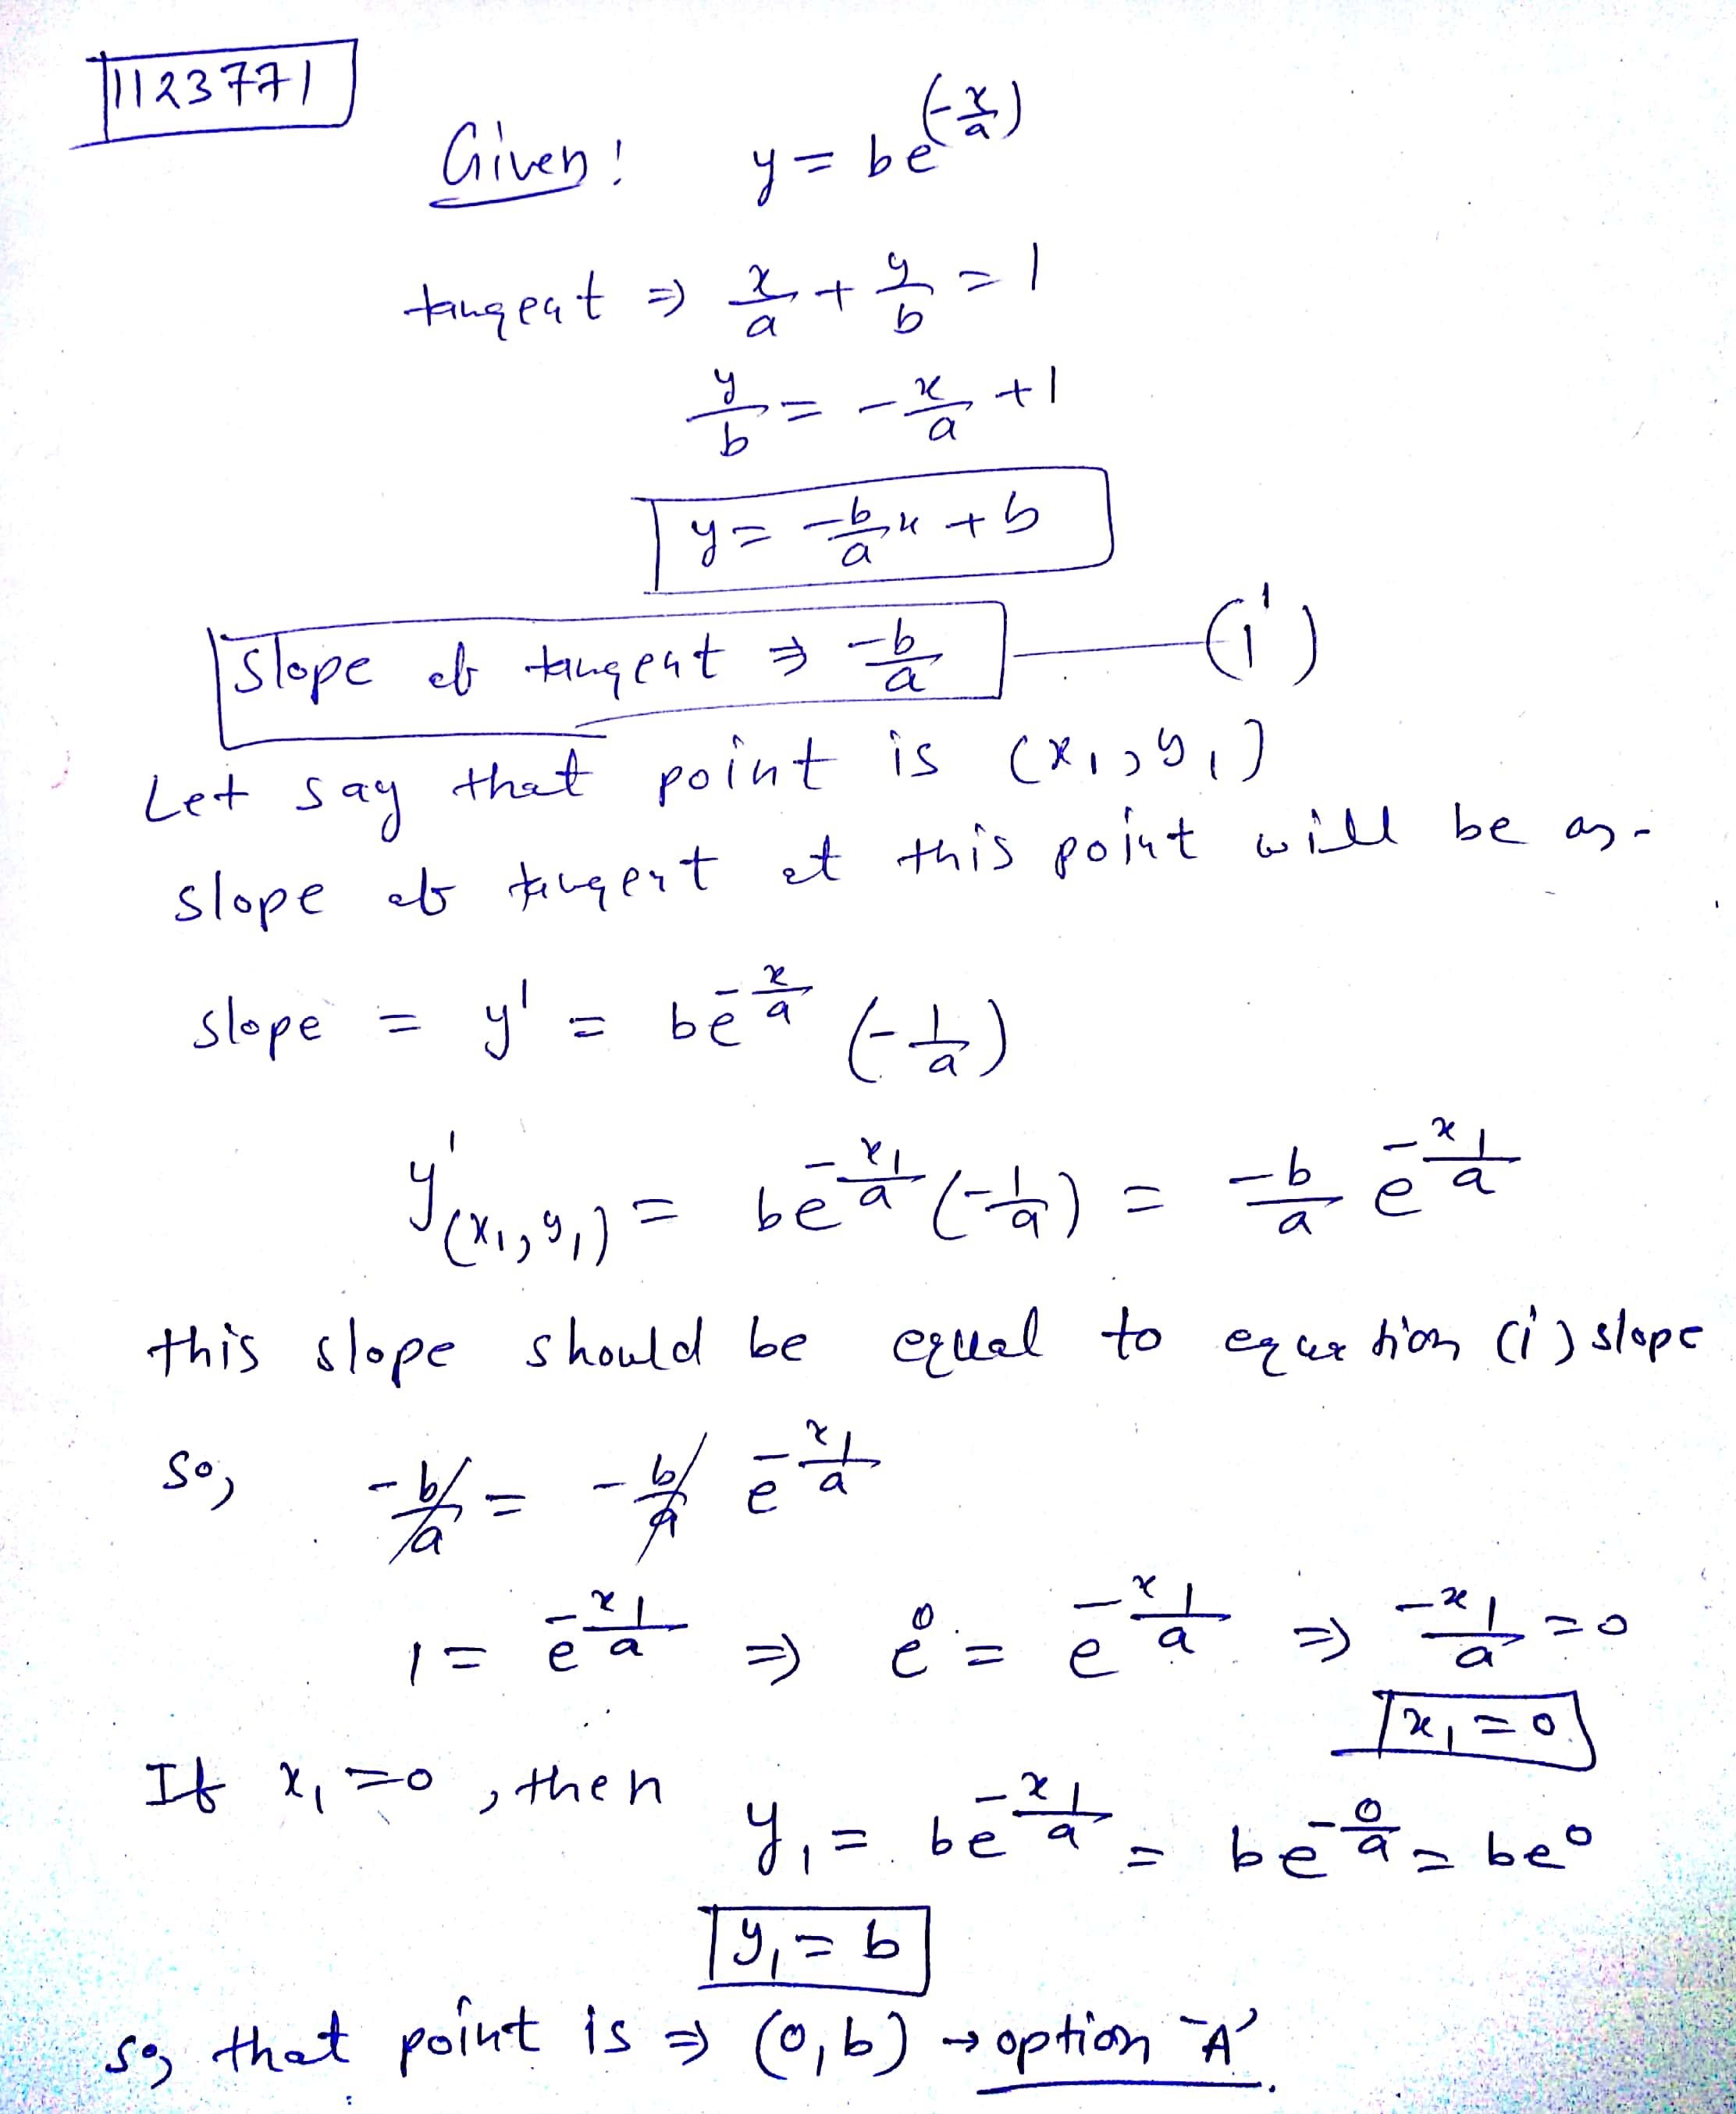 1123771
Given! y = be^(-x/a)
tangent ⇒ x/a + y/b = 1
y/b = -x/a + 1
y = -b/a x + b
slope of tangent ⇒ -b/a —— (i)
Let say that point is (x₁, y₁)
slope of tangent at this point will be as-
slope = y' = be^(-x/a) (-1/a)
y'(x₁, y₁) = be^(-x₁/a) (-1/a) = -b/a e^(-x₁/a)
this slope should be equal to equation (i) slope
so, -b/a = -b/a e^(-x₁/a)
1 = e^(-x₁/a) ⇒ e⁰ = e^(-x₁/a) ⇒ -x₁/a = 0
x₁ = 0
If x₁ = 0, then
y₁ = be^(-x₁/a) = be^(-0/a) = be⁰
y₁ = b
so, that point is ⇒ (0, b) → option 'A'.